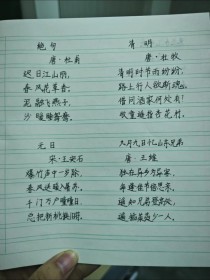 绝句
唐·杜甫
迟日江山丽,
春风花草香。
泥融飞燕子,
沙暖睡鸳鸯。
清明
唐·杜牧
清明时节雨纷纷,
路上行人欲断魂。
借问酒家何处有?
牧童遥指杏花村。
元日
宋·王安石
爆竹声中一岁除,
春风送暖入屠苏。
千门万户曈曈日,
总把新桃换旧符。
九月九日忆山东兄弟
唐·王维
独在异乡为异客,
每逢佳节倍思亲。
遥知兄弟登高处,
遍插茱萸少一人。